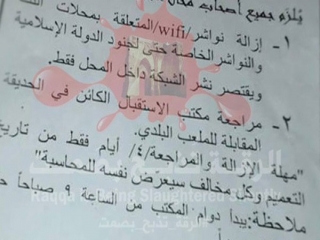 يُلزم جميع أصحاب محال
١- إزالة نواشر/wifi/المتعلقة بمحلات
والنواشر الخاصة حتى لجنود الدولة الإسلامية
ويقتصر نشر الشبكة داخل المحل فقط.
٢- مراجعة مكتب الإستقبال الكائن في الحديقة
المقابلة للملعب البلدي.
"مهلة الإزالة والمراجعة/٤/ أيام فقط من تاريخ
التعميم وكل مخالف سيعرض نفسه للمحاسبة"
ملاحظة:يبدأ دوام المكتب من الساعة ٩ صباحاً
الرقة تذبح بصمت
Raqqa is Being Slaughtered Silently
الرقة تذبح بصمت